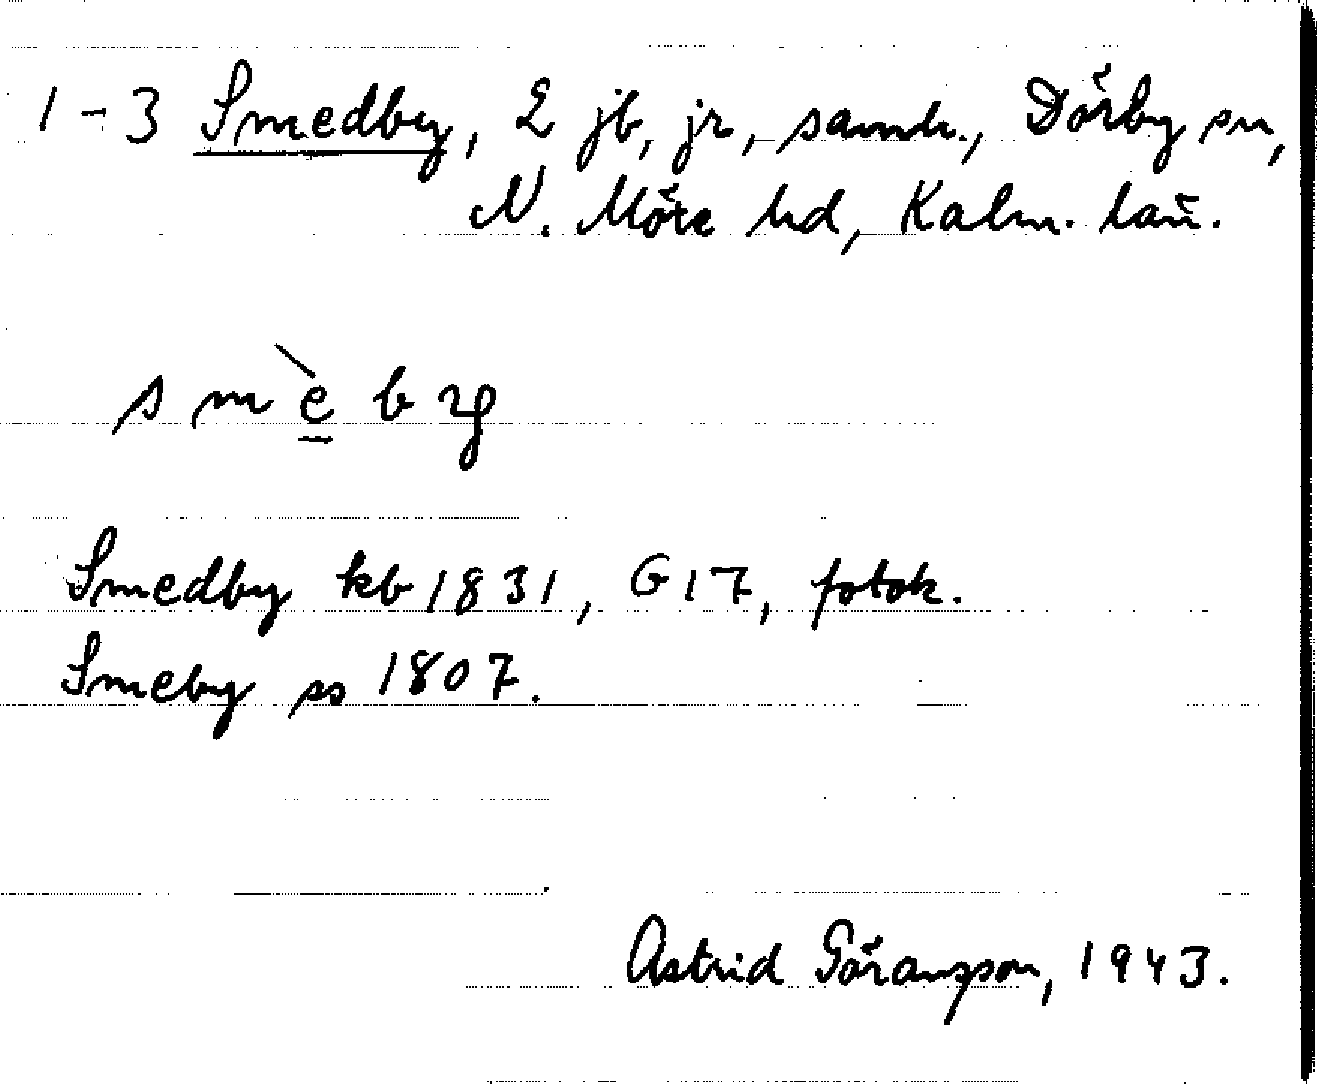 1-3 Smedby, 2 jb, jr, samh., Dörby sn,
N. Möre hd, Kalm. län.
s m è b y
Smedby kb 1831, G17, fotok.
Smeby ss 1807.
Astrid Göranzson, 1943.